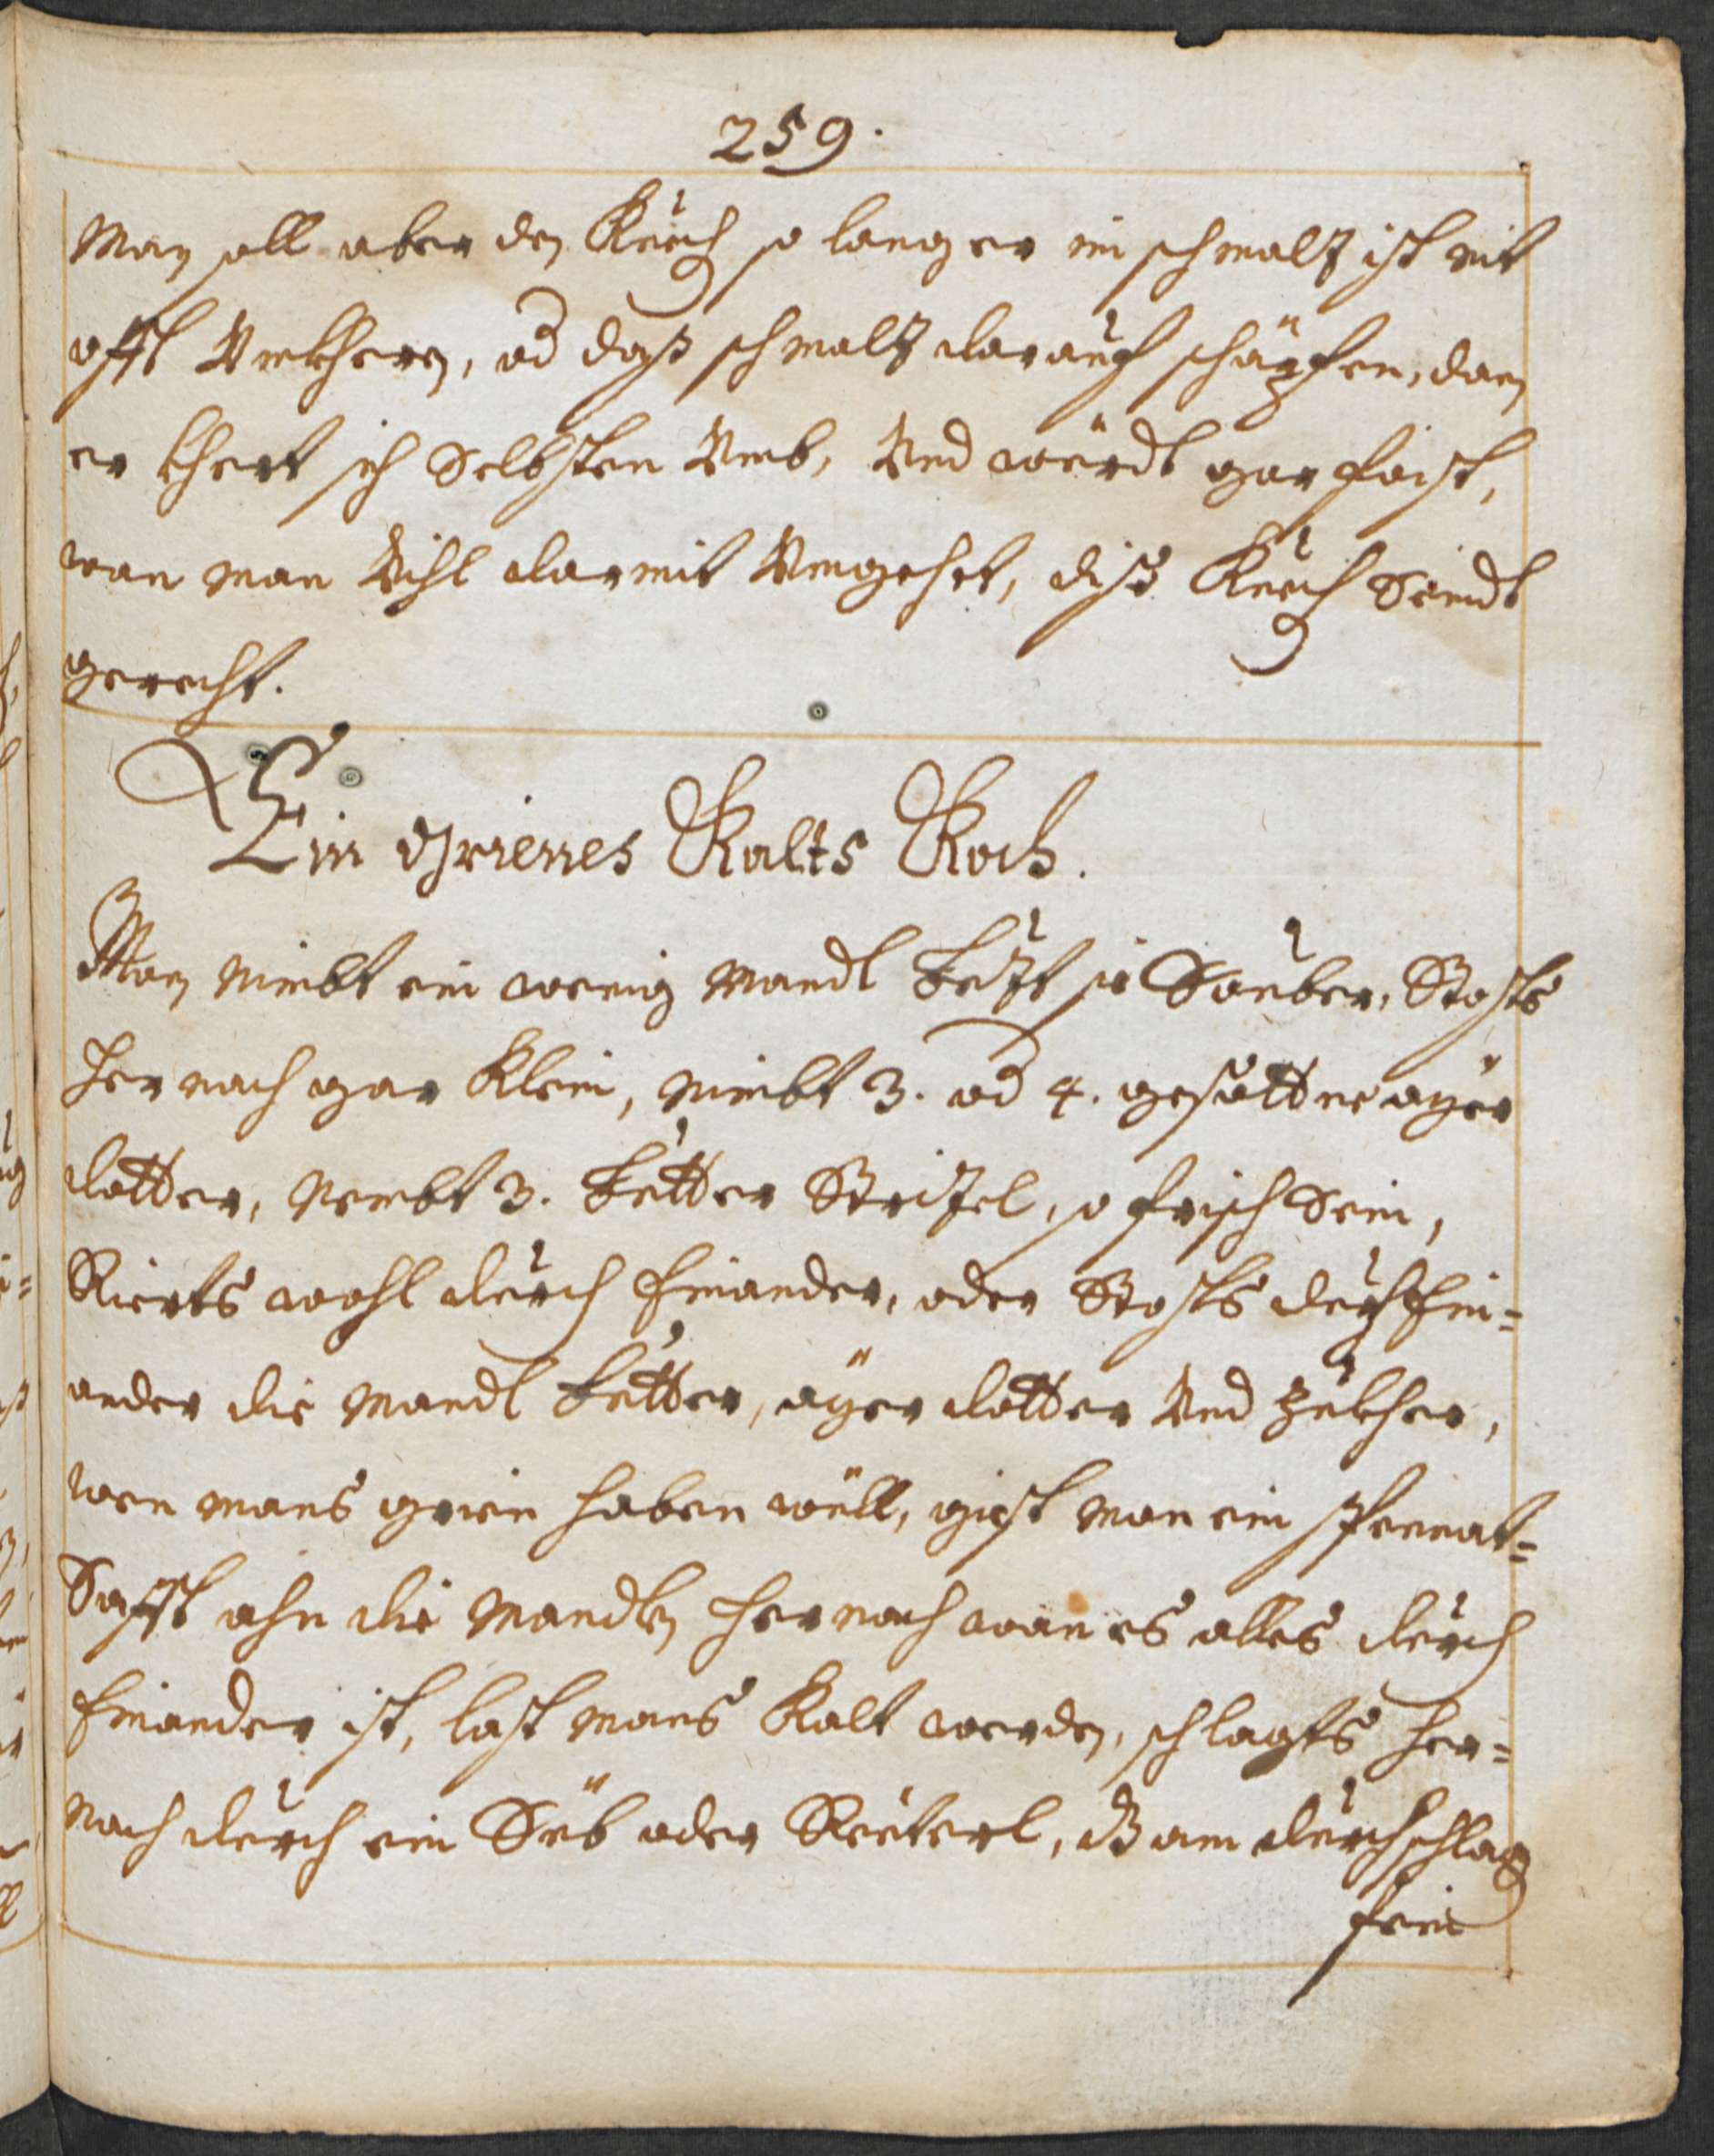 259.
Man soll aber den Kuech so lang er im schmalz ist nit
offt Umbkheren, od daß schmalz darauf schäpfen, dan
er khert sich Selbsten Umb, Und würdt gar faist,
wan man Vihl darmit Umgehet, dise Kuech Seindt
gerecht.
Ein Grienes Kalts Koch.
Man nimbt ein wenig Mandl Letzt sie Sauber, Stosts
hernach gar Klein, nimbt 3. od 4. gesottne ayer
dotter, Nembt 3. Butter Stritzel, so frisch Sein,
Rierts wohl durch Einander, oder Stosts durch Ein=
ander die Mandl Butter, äyer dotter Und Zukher,
wen mans grien haben wüll, giest man ein Spenat=
Safft ahn die Mandlen hernach wan es alles durch
Einander ist, last mans Kalt werden, schlagts her=
nach durch ein Süb oder Reiterl, Bam durchschlag
fein